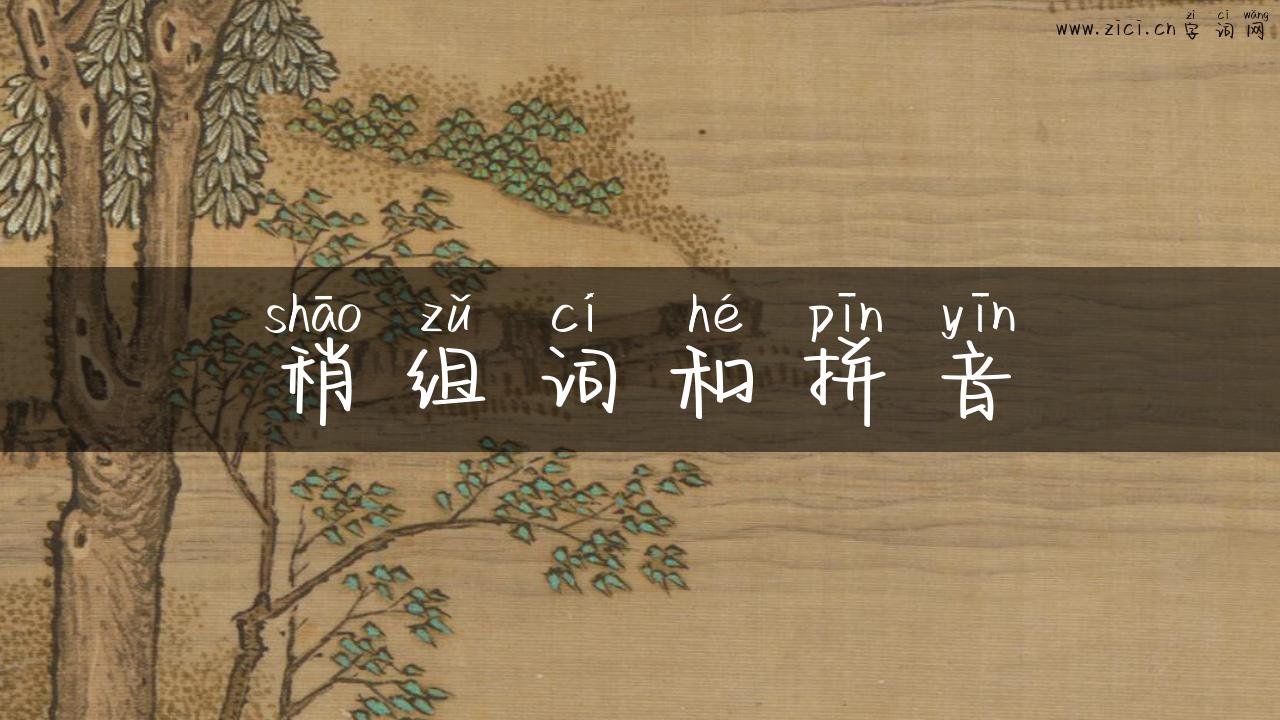 zì cí wǎng
www.zici.cn字词网
shāo zǔ cí hé pīn yīn
稍组词和拼音